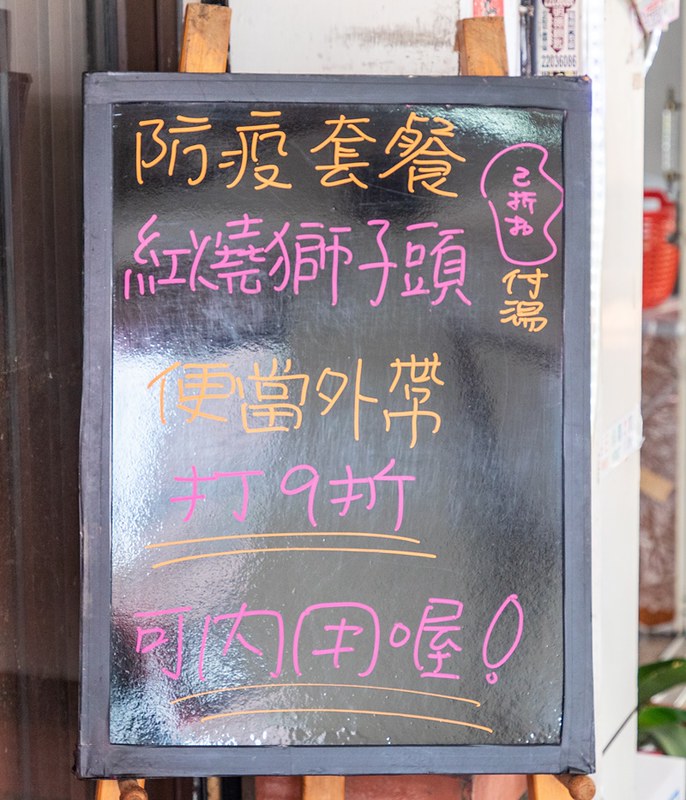 防疫套餐
已折扣
紅燒獅子頭
付湯
便當外帶
打9折
可內用喔!
22036086